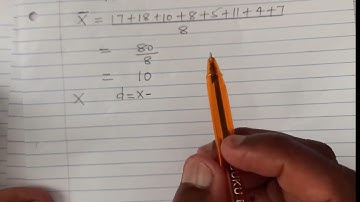 X̄ = 17+18+10+8+5+11+4+7
8
= 80
8
= 10
X d=X-